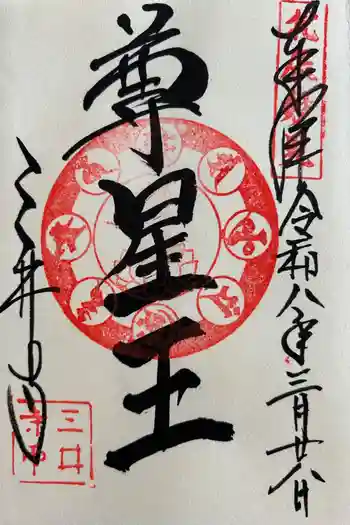 奉拝
令和八年三月廿八日
尊星王
三井寺
三井
寺印